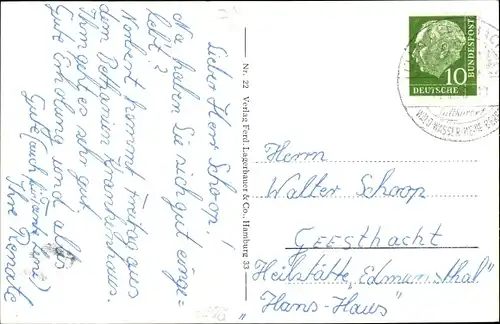 Lieber Herr Schoop!
Na, haben Sie sich gut einge=
lebt?
Norbert kommt Freitag aus
dem Bethanien Krankenhaus.
Ihm geht es sehr gut.
Gute Erholung und alles
Gute (auch für Tante
Ihre Renate
Nr. 22 Verlag Ferd. Lagerbauer & Co., Hamburg 33
10
DEUTSCHE
BUNDESPOST
Luftkurort
Herrn
Walter Schoop
GEESTHACHT
Heilstätte „Edmunsthal"
„Hans-Haus"